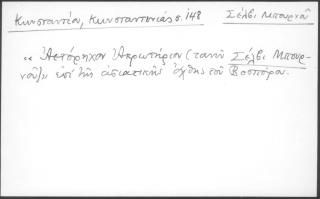 Κωνσταντίου, Κωνσταντινιάς σ. 148 Σέλβι Μπουρνού
"Ἀκρωτήριον (τανῦν Σέλβι Μπουρ-
νοῦ)" ἐπὶ τῆς ἀσιατικῆς ὄχθης τοῦ Βοσπόρου.